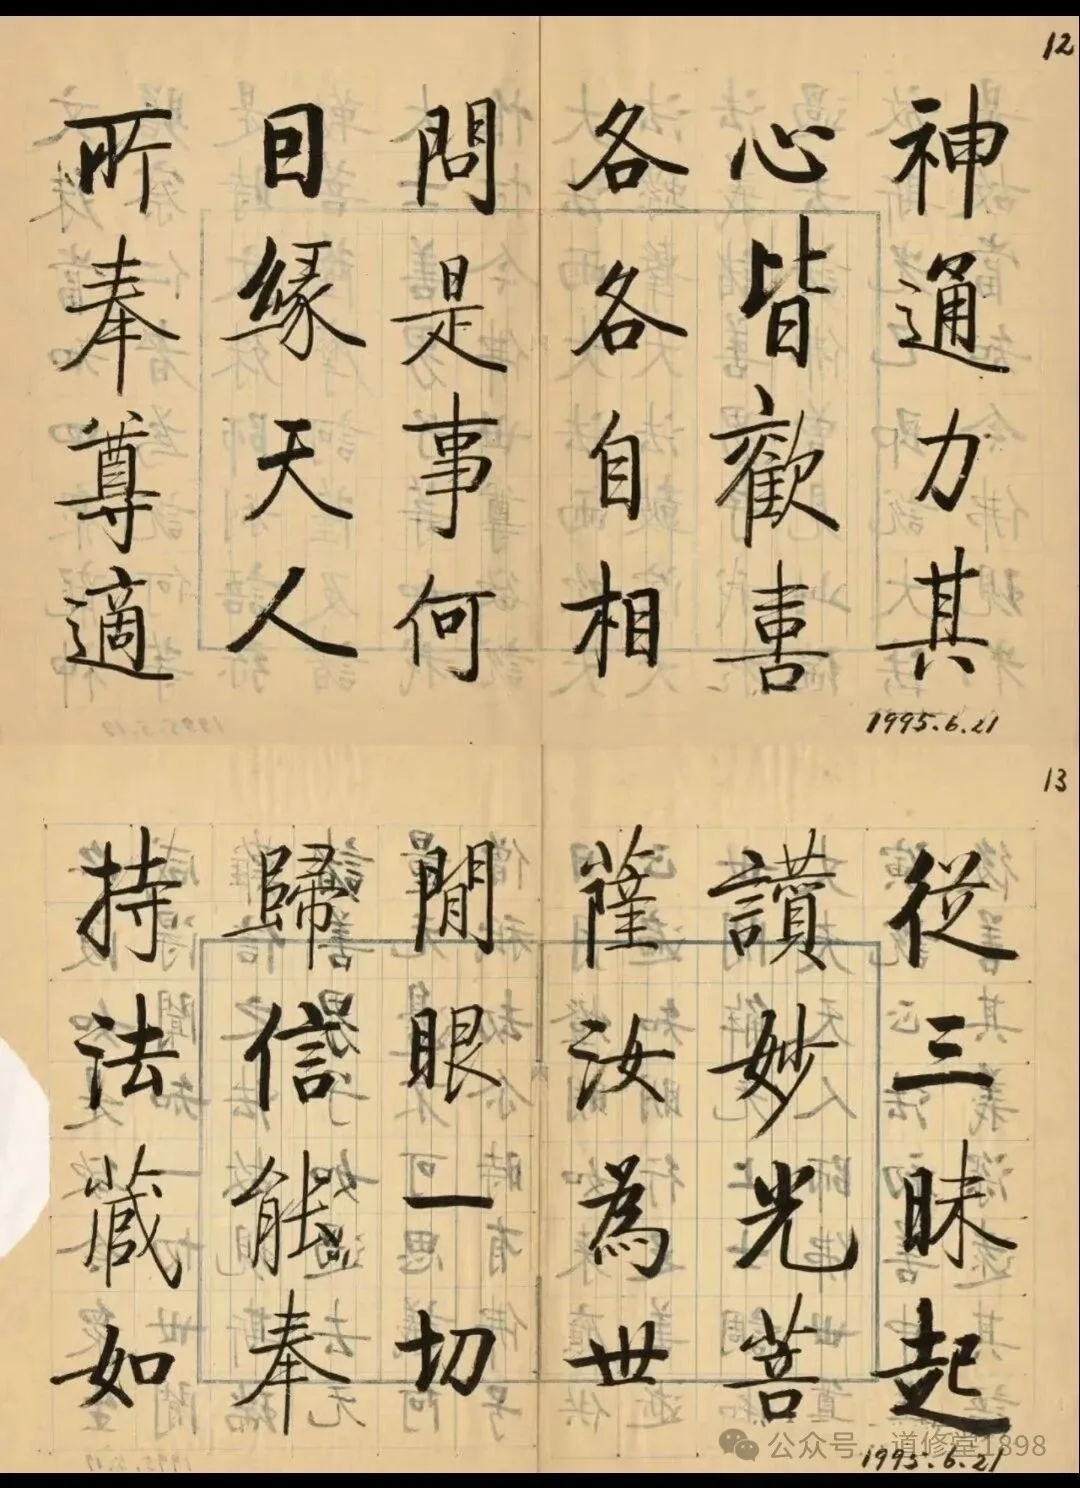 12
神通力其
心皆歡喜
各各自相
問是事何
因緣天人
所奉尊適
1995.6.21
13
從三昧起
讚妙光菩
薩汝為世
間眼一切
歸信能奉
持法藏如
公众号 道修堂1898
1995.6.21